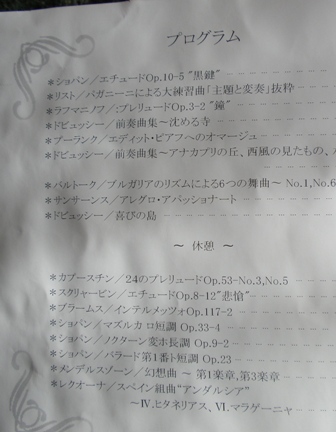 プログラム
＊ショパン／エチュードOp.10-5 "黒鍵"
＊リスト／パガニーニによる大練習曲「主題と変奏」抜粋
＊ラフマニノフ／:プレリュードOp.3-2 "鐘"
＊ドビュッシー／前奏曲集～沈める寺
＊プーランク／エディット・ピアフへのオマージュ
＊ドビュッシー／前奏曲集～アナカプリの丘、西風の見たもの、
＊バルトーク／ブルガリアのリズムによる6つの舞曲～ No.1,No.6
＊サンサーンス／アレグロ・アパッショナート
＊ドビュッシー／喜びの島
～ 休憩 ～
＊カプースチン／24のプレリュードOp.53-No.3,No.5
＊スクリャービン／エチュードOp.8-12"悲愴"
＊ブラームス／インテルメッツォOp.117-2
＊ショパン／マズルカ ロ短調 Op.33-4
＊ショパン／ノクターン変ホ長調 Op.9-2
＊ショパン／バラード第1番ト短調 Op.23
＊メンデルスゾーン／幻想曲 ～ 第1楽章,第3楽章
＊レクオーナ／スペイン組曲"アンダルシア"
～Ⅳ.ヒタネリアス、Ⅵ.マラゲーニャ